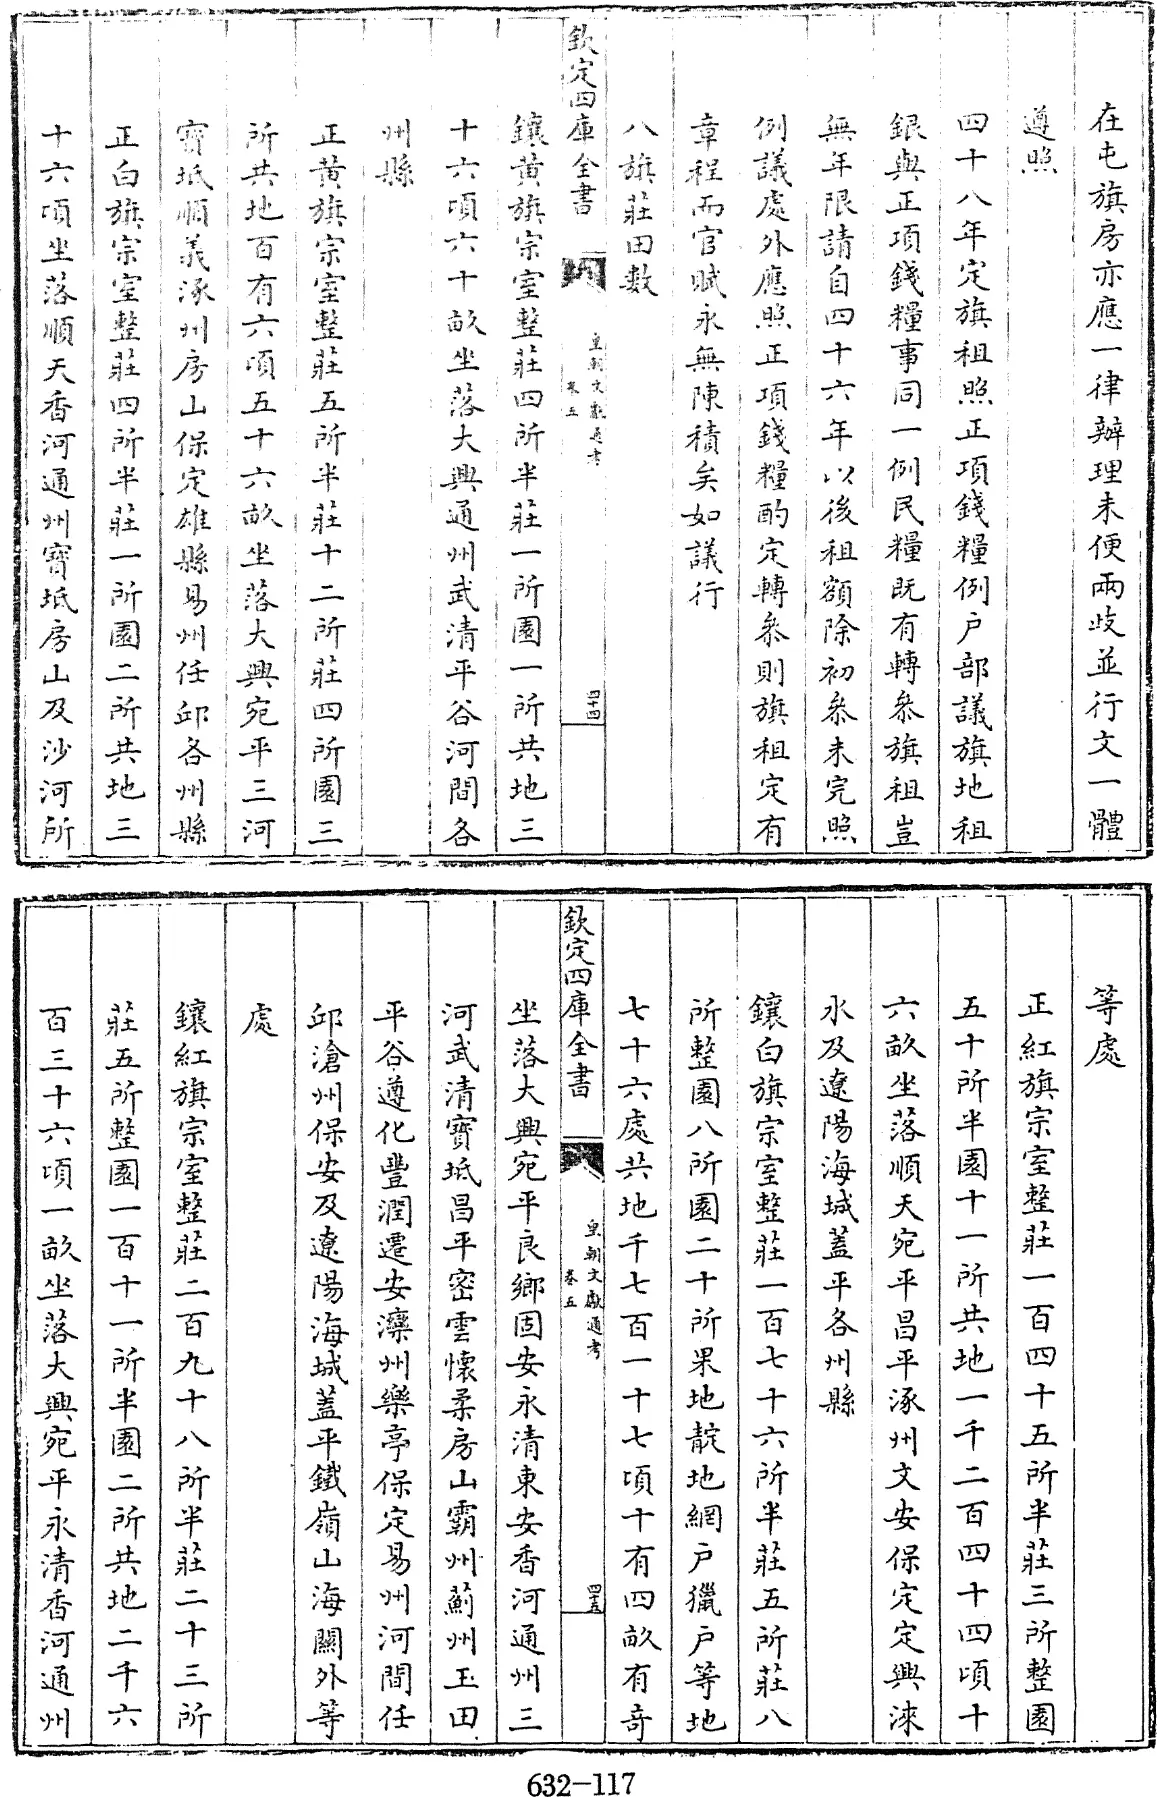 在屯旗房亦應一律辦理未便兩歧並行文一體
遵照
四十八年定旗租照正項錢糧例户部議旗地租
銀與正項錢糧事同一例民糧既有轉叅旗租豈
無年限請自四十六年以後租額除初叅未完照
例議處外應照正項錢糧酌定轉叅則旗租定有
章程而官賦永無陳積矣如議行
八旗莊田數
欽定四庫全書
皇朝文獻通考
卷五
四十四
鑲黄旗宗室整莊四所半莊一所園一所共地三
十六頃六十畝坐落大興通州武清平谷河間各
州縣
正黄旗宗室整莊五所半莊十二所莊四所園三
所共地百有六頃五十六畝坐落大興宛平三河
寶坻順義涿州房山保定雄縣易州任邱各州縣
正白旗宗室整莊四所半莊一所園二所共地三
十六頃坐落順天香河通州寶坻房山及沙河所
等處
正紅旗宗室整莊一百四十五所半莊三所整園
五十所半園十一所共地一千二百四十四頃十
六畝坐落順天宛平昌平涿州文安保定定興淶
水及遼陽海城蓋平各州縣
鑲白旗宗室整莊一百七十六所半莊五所莊八
所整園八所園二十所果地靛地網户獵户等地
七十六處共地千七百一十七頃十有四畝有奇
欽定四庫全書
皇朝文獻通考
卷五
四十五
坐落大興宛平良鄉固安永清東安香河通州三
河武清寶坻昌平密雲懷柔房山霸州薊州玉田
平谷遵化豐潤遷安灤州樂亭保定易州河間任
邱滄州保安及遼陽海城蓋平鐵嶺山海關外等
處
鑲紅旗宗室整莊二百九十八所半莊二十三所
莊五所整園一百十一所半園二所共地二千六
百三十六頃一畝坐落大興宛平永清香河通州
632-117